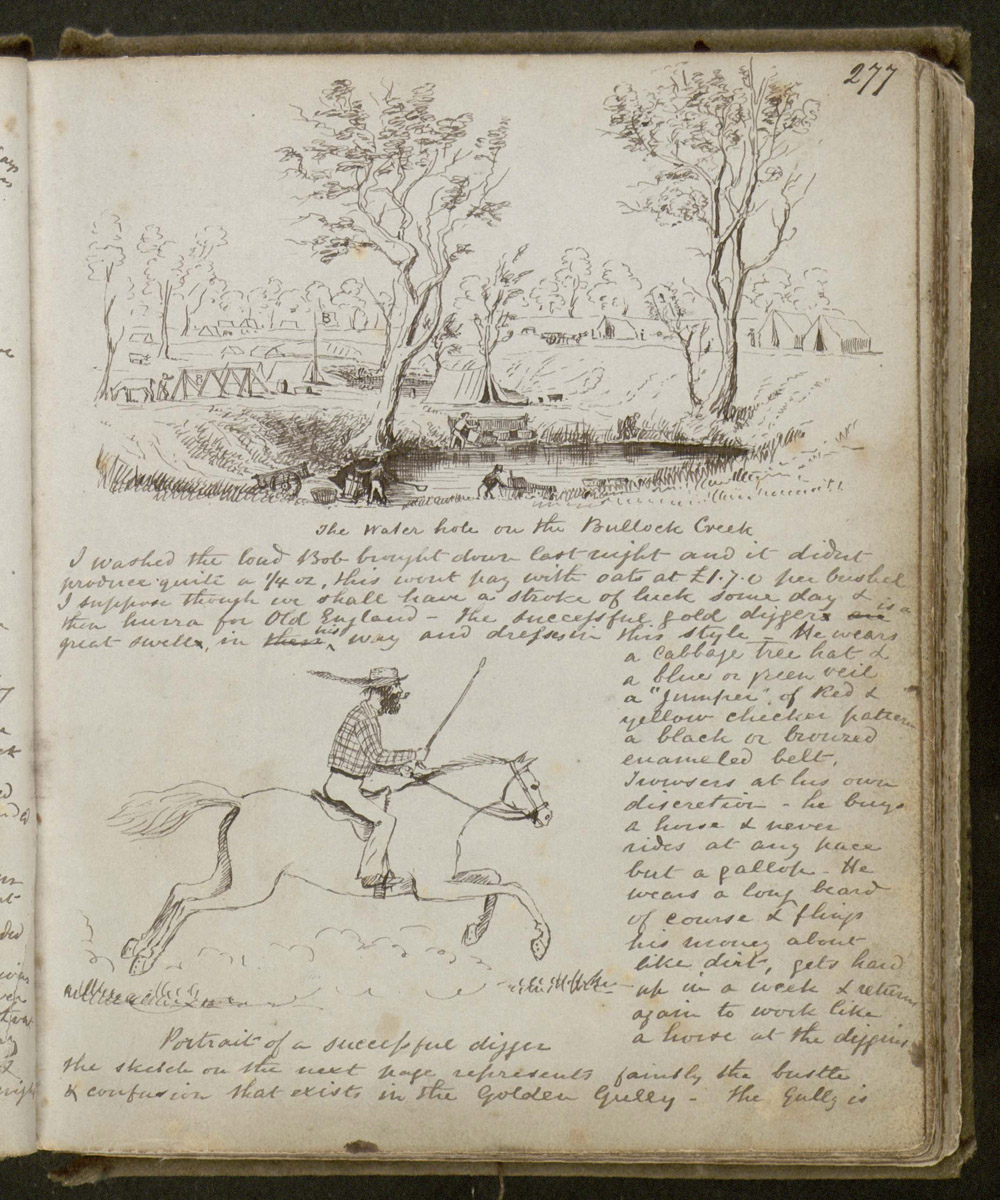 277
B
The Water hole on the Bullock Creek
I washed the load Bob brought down last night and it didnt
produce quite a 1/4 oz, this wont pay with oats at £1.7.0 per bushel
I suppose though we shall have a stroke of luck some day &
then hurra for Old England - The successful gold digger is a
great swell, in his way and dresses in this style - He wears
a Cabbage tree hat &
a blue or green veil
a "Jumper" of Red &
yellow checker pattern
a black or bronzed
enameled belt,
Trowsers at his own
discretion - he buys
a horse & never
rides at any pace
but a gallop - He
wears a long beard
of course & flings
his money about
like dirt, gets hard
up in a week & returns
again to work like
a horse at the diggins
Portrait of a successful digger
the sketch on the next page represents faintly the bustle
& confusion that exists in the Golden Gully - the Gully is